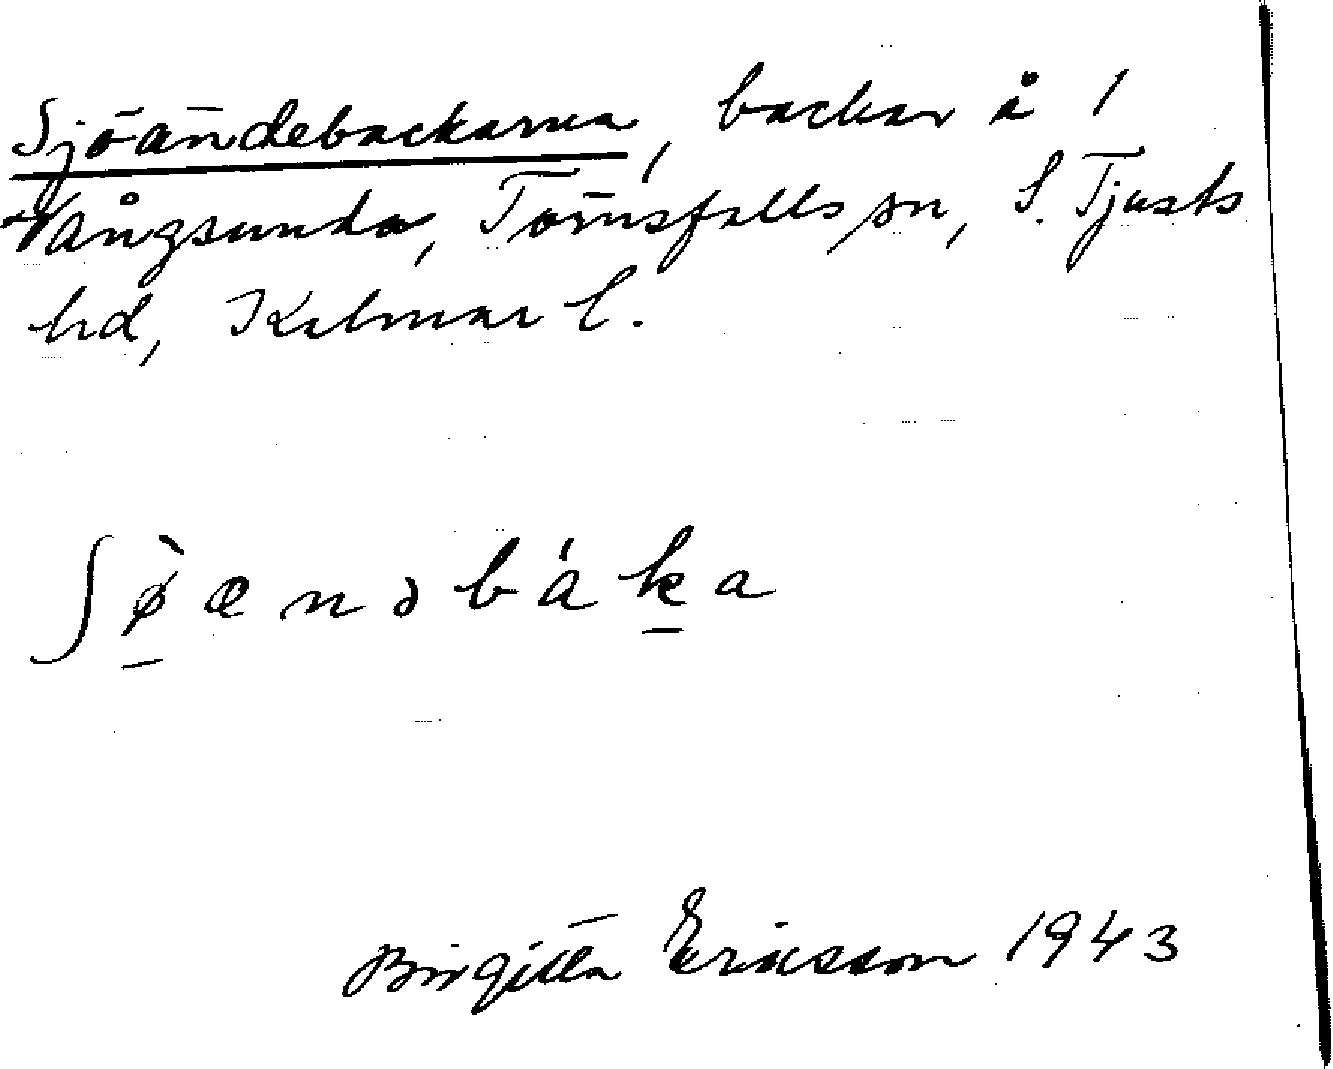 Sjöändebackarna, backar å 1
Vångsunda, Törnsfalls sn, S. Tjusts
hd, Kalmar l.
ʃø̀ændəbáka
Birgitta Ericsson 1943